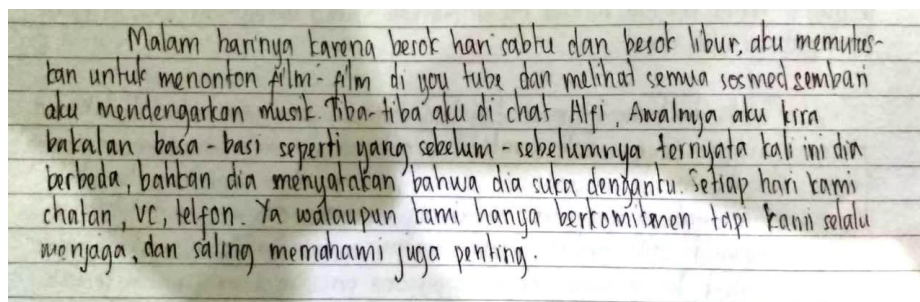 Malam harinya karena besok hari sabtu dan besok libur, aku memutus-
kan untuk menonton film-film di you tube dan melihat semua sosmed sembari
aku mendengarkan musik. Tiba-tiba aku di chat Alfi, Awalnya aku kira
bakalan basa-basi seperti yang sebelum-sebelumnya ternyata kali ini dia
berbeda, bahkan dia menyatakan bahwa dia suka denganku. Setiap hari kami
chatan, VC, telfon. Ya walaupun kami hanya berkomitmen tapi kami selalu
menjaga, dan saling memahami juga penting.